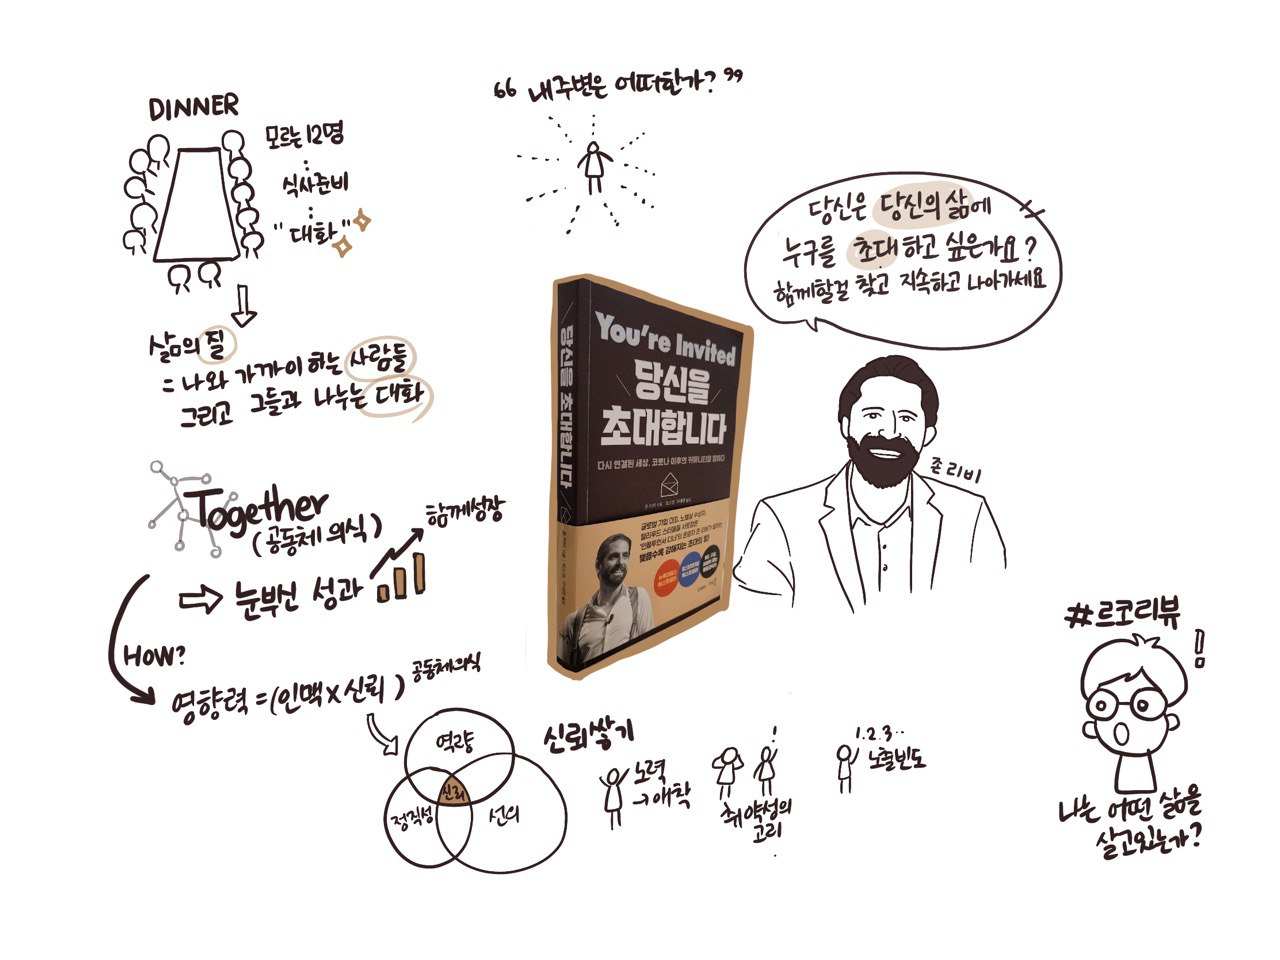 DINNER
모르는 12명
식사준비
"대화"
삶의 질
= 나와 가까이 하는 사람들
그리고 그들과 나누는 대화
Together
(공동체 의식)
함께성장
눈부신 성과
HOW?
영향력 = (인맥 x 신뢰) 공동체의식
역량
정직성
신뢰
선의
신뢰쌓기
노력
→ 애착
!
취약성의
고리
1.2.3..
노출빈도
“ 내 주변은 어떠한가? ”
당신은 당신의 삶에
누구를 초대하고 싶은가요?
함께할걸 찾고 지속하고 나아가세요
존 리비
당신을 초대합니다
You're Invited
당신을
초대합니다
다시 연결된 세상, 코로나 이후의 커뮤니티를 말하다
글로벌 기업 CEO, 노벨상 수상자,
#르코리뷰
!
나는 어떤 삶을
살고있는가?